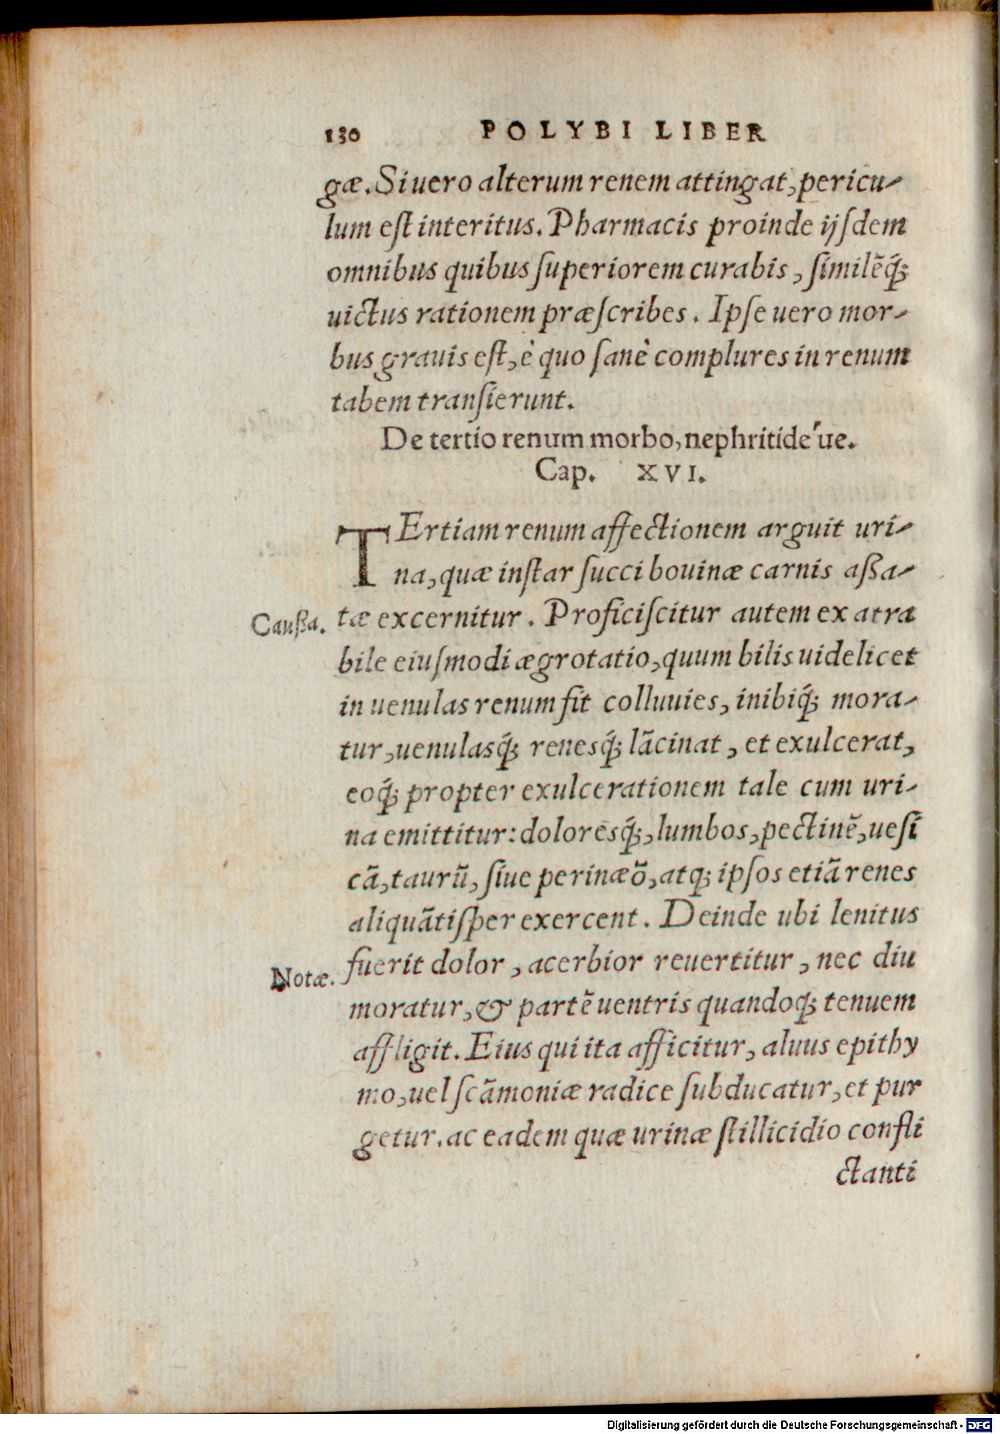 130 POLYBI LIBER
gæ. Si uero alterum renem attingat, pericu-
lum est interitus. Pharmacis proinde ijsdem
omnibus quibus superiorem curabis, similēq́;
uictus rationem præscribes. Ipse uero mor-
bus grauis est, è quo sanè complures in renum
tabem transierunt.
De tertio renum morbo, nephritide'ue.
Cap. XVI.
TErtiam renum affectionem arguit uri-
na, quæ instar succi bouinæ carnis aßa-
Caußa.
tæ excernitur. Proficiscitur autem ex atra
bile eiusmodi ægrotatio, quum bilis uidelicet
in uenulas renum fit colluuies, inibiq́; mora-
tur, uenulasq́; renesq́; lācinat, et exulcerat,
eoq́; propter exulcerationem tale cum uri-
na emittitur: doloresq́;, lumbos, pectinē, uesi
cā, taurū, siue perinæō, atq; ipsos etiā renes
aliquātisper exercent. Deinde ubi lenitus
Notæ.
fuerit dolor, acerbior reuertitur, nec diu
moratur, & partē uentris quandoq; tenuem
affligit. Eius qui ita afficitur, aluus epithy
mo, uel scāmoniæ radice subducatur, et pur
getur. ac eadem quæ urinæ stillicidio confli
ctanti
Digitalisierung gefördert durch die Deutsche Forschungsgemeinschaft - DFG